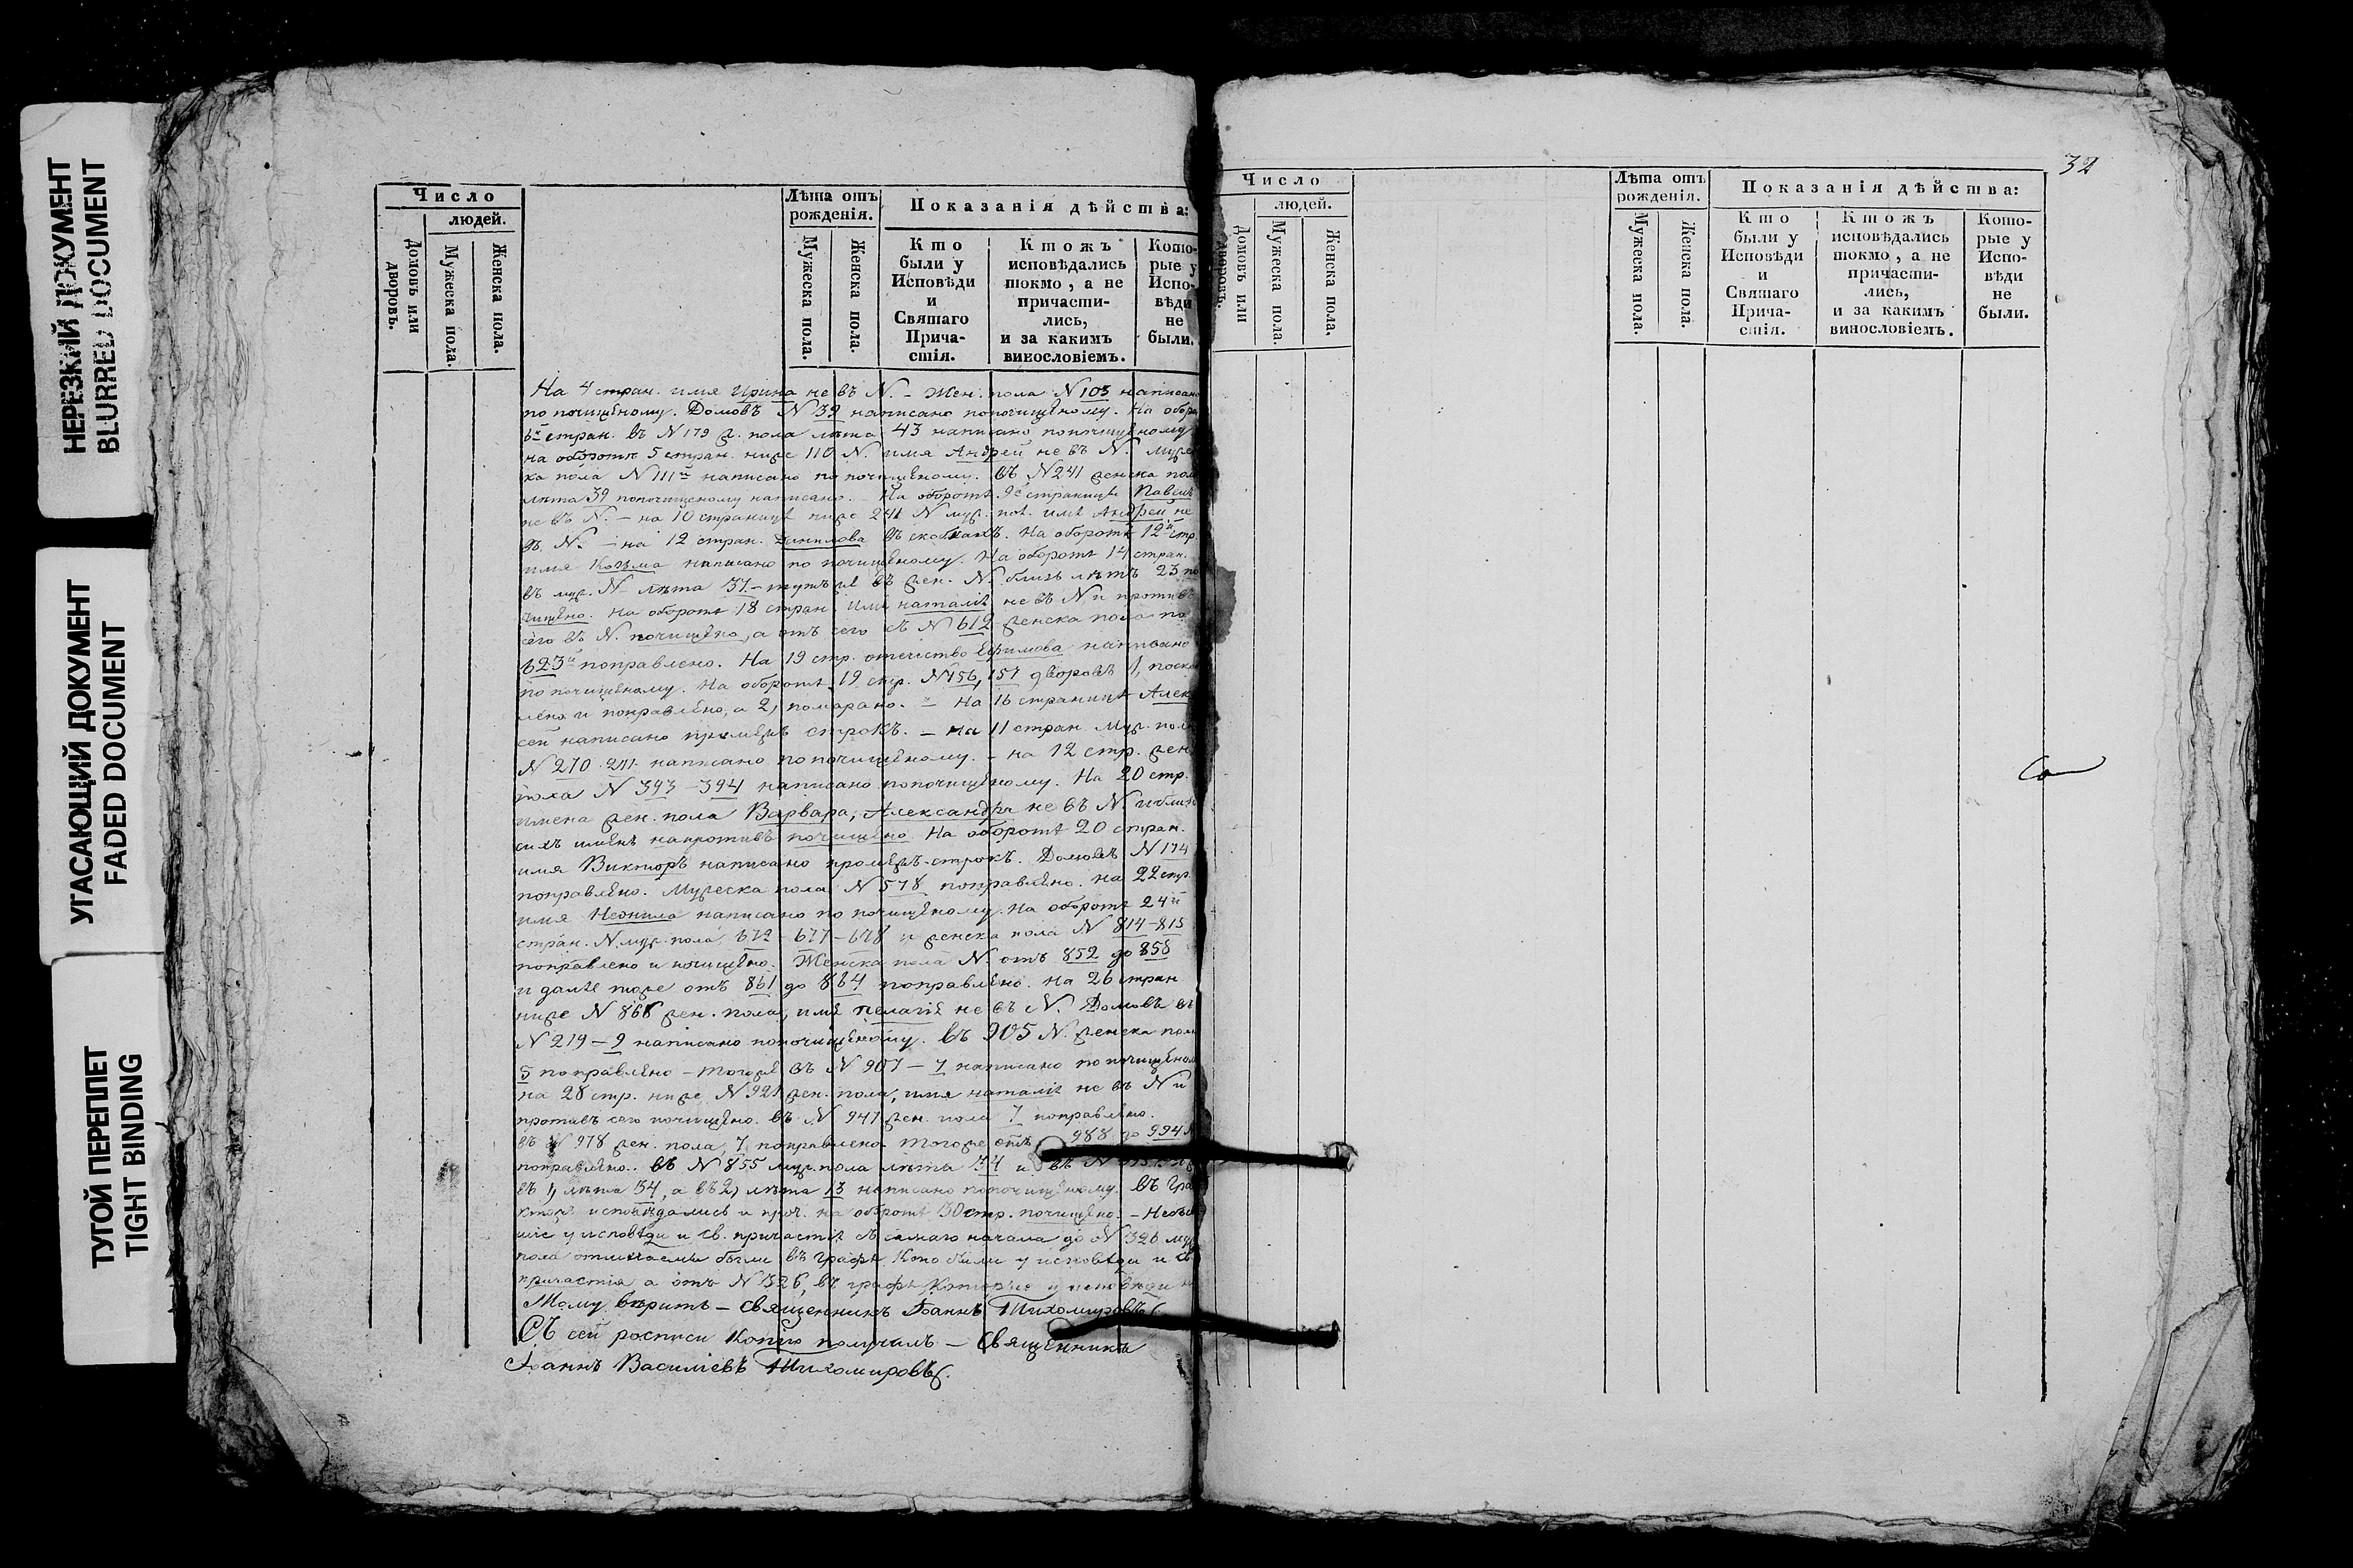 НЕРЕЗКИЙ ДОКУМЕНТ
BLURRED DOCUMENT
УГАСАЮЩИЙ ДОКУМЕНТ
FADED DOCUMENT
ТУГОЙ ПЕРЕПЛЕТ
TIGHT BINDING
Число
людей.
Домовъ или дворовъ.
Мужеска пола.
Женска пола.
Лѣта отъ рожденія.
Мужеска пола.
Женска пола.
Показанія дѣйства:
Кто были у Исповѣди и Святаго Причастія.
Ктожъ исповѣдались токмо, а не причастились, и за какимъ винословіемъ.
Которые у Исповѣди не были.
На 4 стран. имя Ирина не въ N. – Жен. пола N 103 написано
по почищеному. Домовъ N 39 написано попочищеному. На обор
6й стран. въ N 179 ж. пола лѣта 43 написано попочищеному
на оборотѣ 5 стран. ниже 110 N. имя Андрей не въ N. Муже
ка пола N 111й написано по почищеному. въ N 241 женска пол
лѣта 39 попочищеному написано. – На оборотѣ 9й страницы Павелъ
не въ N. – на 10 страницѣ ниже 241 N муж. пол. имя Андрей не
въ N. – на 12 стран. Данилова въ скобкахъ. На оборотѣ 12й стр.
имя Козьма написано по почищеному. На оборотѣ 14 стран.
въ муж. N лѣта 37 – тутъ же въ жен. N. близь лѣтъ 23 по
чищено. На оборотѣ 18 стран. имя наталія не въ N и противъ
сего въ N. почищено, а отъ сего съ N 612 женска пола по
623й поправлено. На 19 стр. отечество Ефимова написано
по почищеному. На оборотѣ 19 стр. N 156, 157 дворовъ 1, поскоб
лено и поправлено, а 2, помарано. – На 16 страницѣ Алек
сей написано промежъ строкъ. – На 11 стран Муж. пола
N 270 271 написано попочищеному. – на 12 стр. жен
пола N 393–394 написано попочищеному. На 20 стр.
имена жен. пола Варвара, Александра не въ N. и близь
сихъ именъ напротивъ почищено. На оборотѣ 20 стран.
имя Викторъ написано промежъ-строкъ. Домовъ N 174
поправлено. Мужеска пола N 578 поправлено. На 22 стр.
имя Неонила написано по почищеному. На оборотѣ 24й
стран. N. муж. пола 672 – 677–678 и женска пола N 814–815
поправлено и почищено. Женска пола N. отъ 852 до 858
и далѣе тоже отъ 861 до 864 поправлено. На 26 стран
ниже N 868 жен. пола, имя пелагія не въ N. Домовъ въ
N 219 – 9 написано попочищеному. Въ 905 N. женска пола
5 поправлено – тогоже въ N 907 – 7 написано по почищеном
на 28 стр. ниже N 921 жен. пола, имя наталія не въ N и
противъ сего почищено. въ N 947 жен. пола 7 поправлено.
въ N 978 жен. пола, 7 поправлено тогоже отъ 988 до 994
поправлено. въ N 855 муж. пола лѣта и въ N
въ 1, лѣта 34, а въ 2, лѣта 13 написано попочищеному. Въ Гра
исповѣдались и проч. на оборотѣ 30 стр. почищено. –
у исповѣди и св. причастія съ самаго начала до N 326 муж
пола отмечаемы были въ графѣ Кто были у исповѣди и св
причастія а отъ N 326, въ графѣ Которые у исповѣди н
Тому вѣритъ – Священникъ Іоаннъ Тихомировъ.
Съ сей росписи Копию получилъ – Священникъ
Іоаннъ Василіевъ Тихомировъ.
32
Число
людей.
Домовъ или дворовъ.
Мужеска пола.
Женска пола.
Лѣта отъ рожденія.
Мужеска пола.
Женска пола.
Показанія дѣйства:
Кто были у Исповѣди и Святаго Причастія.
Ктожъ исповѣдались токмо, а не причастились, и за какимъ винословіемъ.
Которые у Исповѣди не были.